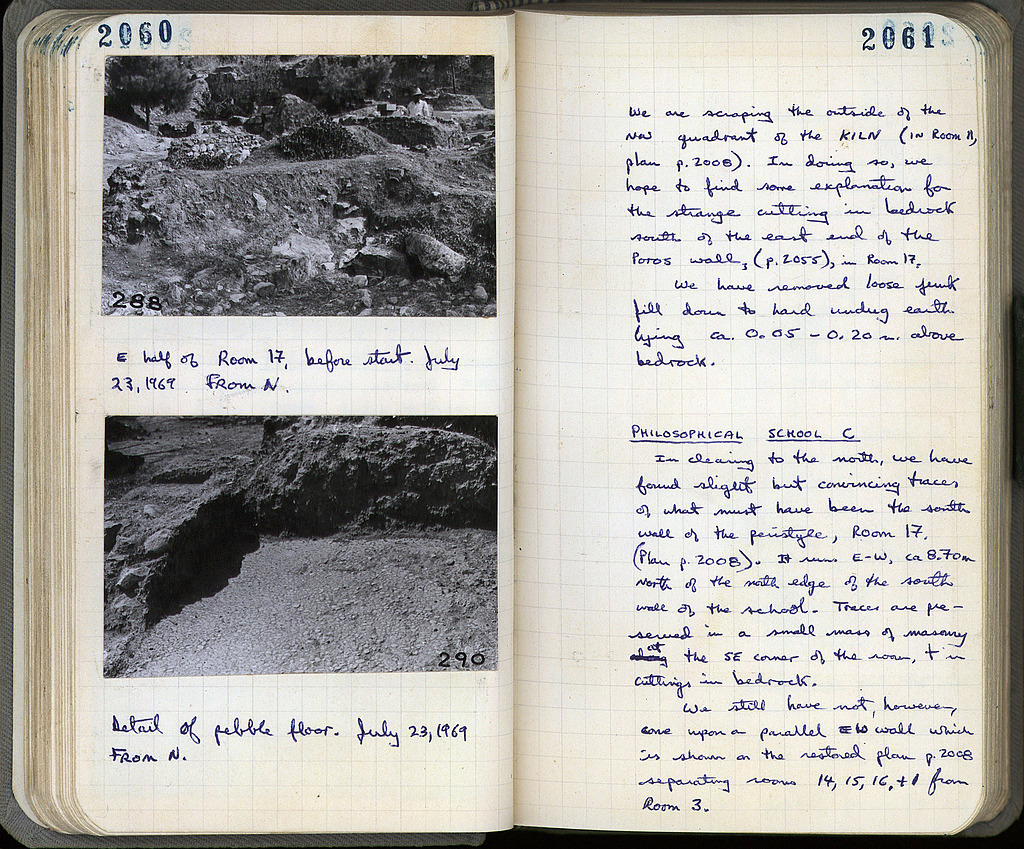 2060
288
E half of Room 17, before start. July
23, 1969. FROM N.
290
Detail of pebble floor. July 23, 1969
FROM N.
2061
We are scraping the outside of the
NW quadrant of the KILN (IN Room 11,
plan p. 2008). In doing so, we
hope to find some explanation for
the strange cutting in bedrock
south of the east end of the
Poros wall, (p. 2055), in Room 17.
We have removed loose junk
fill down to hard undug earth
lying ca. 0.05 - 0.20 m. above
bedrock.
PHILOSOPHICAL SCHOOL C
In clearing to the north, we have
found slight but convincing traces
of what must have been the south
wall of the peristyle, Room 17.
(Plan p. 2008). It runs E-W, ca 8.70m
north of the north edge of the south
wall of the school. Traces are pre-
served in a small mass of masonry
at the SE corner of the room, + in
cuttings in bedrock.
We still have not, however,
come upon a parallel EW wall which
is shown on the restored plan p. 2008
separating rooms 14, 15, 16, +1 from
Room 3.